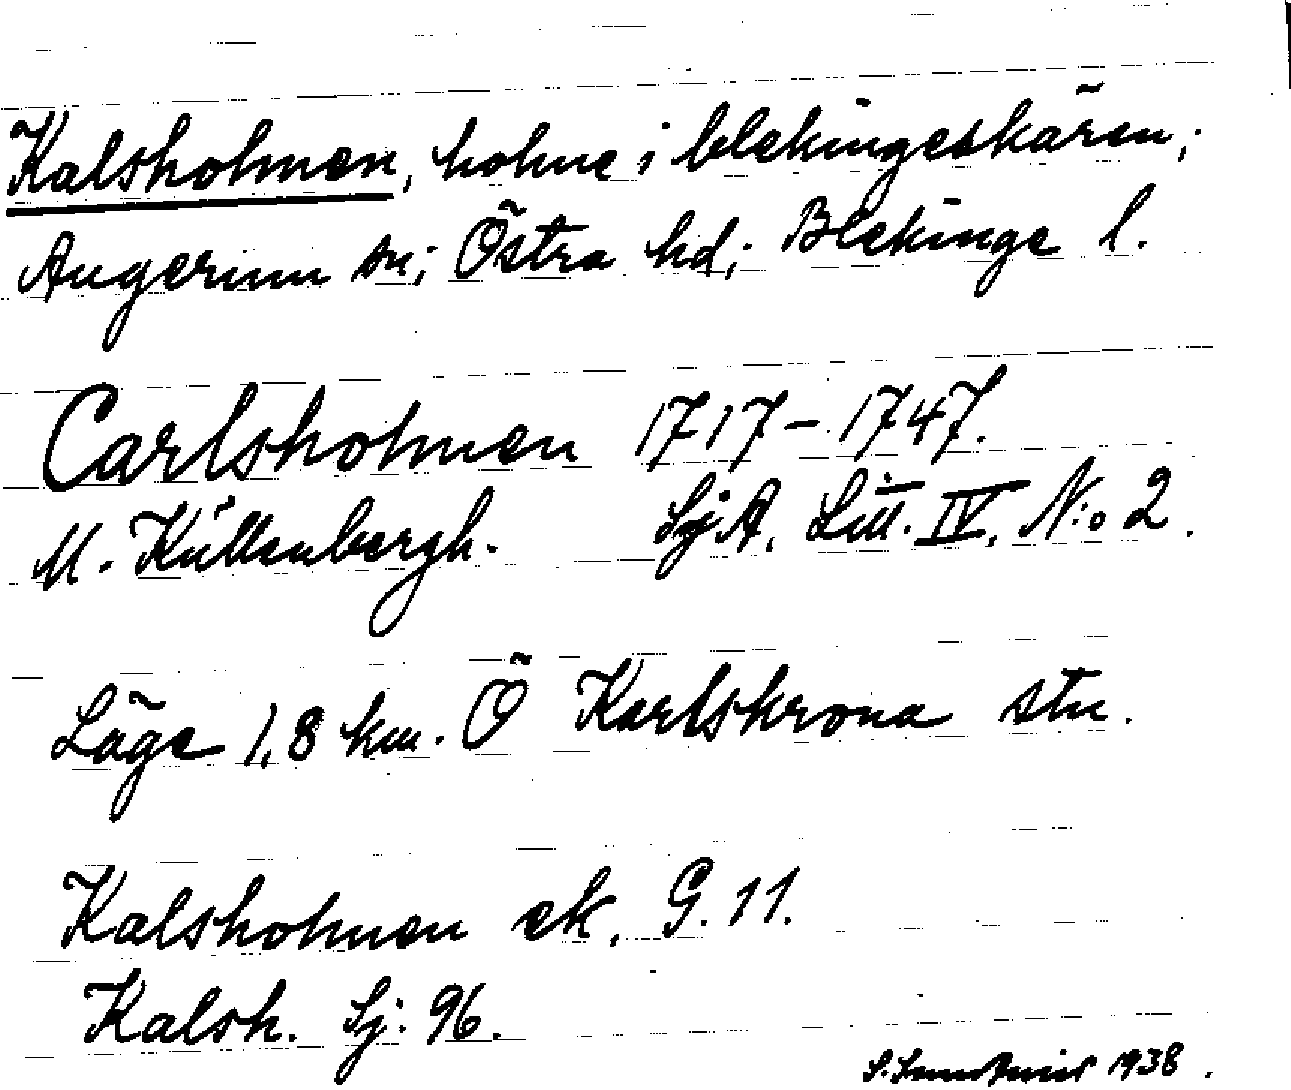 Kalsholmen, holme i blekingeskären;
Augerum sn; Östra hd; Blekinge l.
Carlsholmen 1717-1747.
M. Küllenbergh. SjA. Litt. IV, N:o 2.
Läge 1,8 km. Ö Karlskrona stn.
Kalsholmen ek. G. 11.
Kalsh. Sj: 96.
S. 1938.